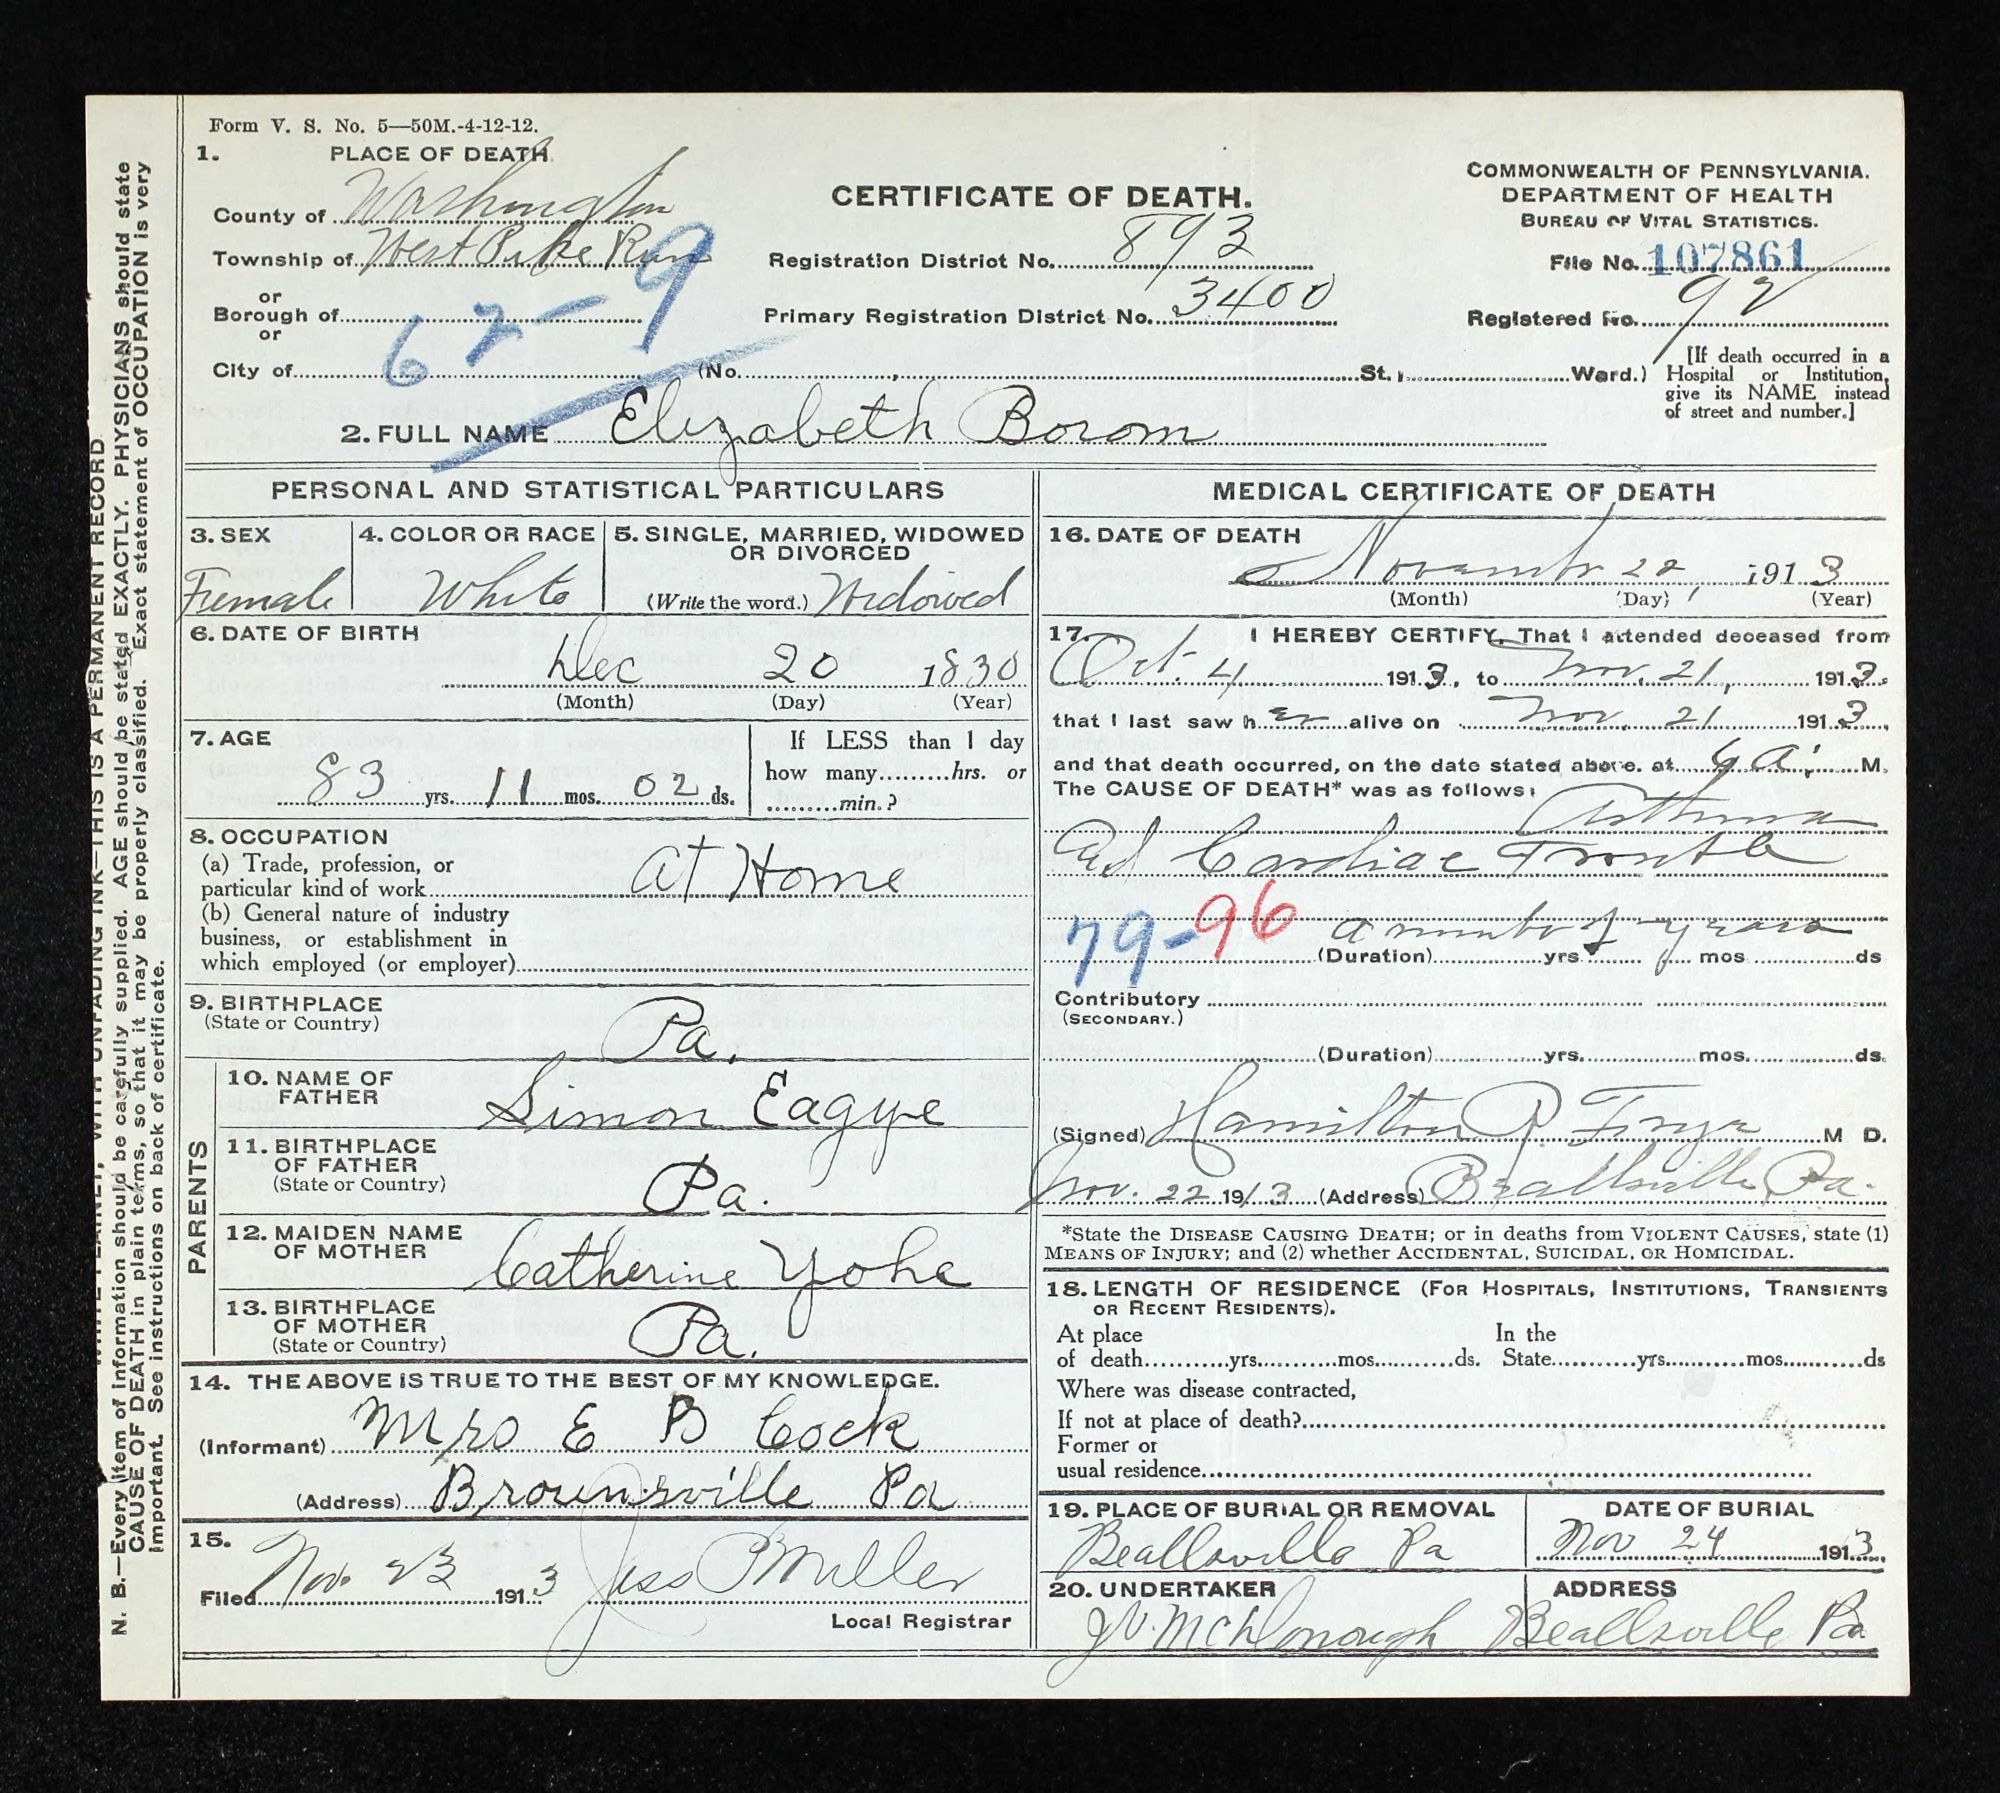 Form V. S. No. 5—50M.-4-12-12.
1. PLACE OF DEATH.
County of Washington
Township of West Pike Run
or
Borough of
or
City of
62-9
CERTIFICATE OF DEATH.
Registration District No. 893
Primary Registration District No. 3400
(No. , St., Ward.)
COMMONWEALTH OF PENNSYLVANIA.
DEPARTMENT OF HEALTH
BUREAU OF VITAL STATISTICS.
File No. 107861
Registered No. 92
[If death occurred in a
Hospital or Institution,
give its NAME instead
of street and number.]
2. FULL NAME Elizabeth Borom
PERSONAL AND STATISTICAL PARTICULARS
3. SEX
Female
4. COLOR OR RACE
White
5. SINGLE, MARRIED, WIDOWED
OR DIVORCED
(Write the word.) Widowed
6. DATE OF BIRTH
Dec 20 1830
(Month) (Day) (Year)
7. AGE
83 yrs. 11 mos. 02 ds.
If LESS than 1 day
how many.........hrs. or
.........min.?
8. OCCUPATION
(a) Trade, profession, or
particular kind of work At Home
(b) General nature of industry
business, or establishment in
which employed (or employer)
9. BIRTHPLACE
(State or Country)
Pa.
PARENTS
10. NAME OF
FATHER
Simon Eagye
11. BIRTHPLACE
OF FATHER
(State or Country)
Pa.
12. MAIDEN NAME
OF MOTHER
Catherine Yohe
13. BIRTHPLACE
OF MOTHER
(State or Country)
Pa.
14. THE ABOVE IS TRUE TO THE BEST OF MY KNOWLEDGE.
(Informant) Mrs E B Cock
(Address) Brownsville Pa
15.
Filed Nov. 23 1913 Jess P Miller
Local Registrar
MEDICAL CERTIFICATE OF DEATH
16. DATE OF DEATH
November 22, 1913
(Month) (Day) (Year)
17. I HEREBY CERTIFY, That I attended deceased from
Oct. 4 1913, to Nov. 21, 1913.
that I last saw her alive on Nov. 21 1913,
and that death occurred, on the date stated above, at A. M.
The CAUSE OF DEATH* was as follows:
Asthma
And Cardiac Trouble
79-96
a number of years
(Duration) yrs. mos ds
Contributory
(SECONDARY.)
(Duration) yrs. mos. ds.
(Signed) Hamilton M D.
Nov. 22 1913 (Address) Beallsville Pa.
*State the DISEASE CAUSING DEATH; or in deaths from VIOLENT CAUSES, state (1)
MEANS OF INJURY; and (2) whether ACCIDENTAL, SUICIDAL, OR HOMICIDAL.
18. LENGTH OF RESIDENCE (FOR HOSPITALS, INSTITUTIONS, TRANSIENTS
OR RECENT RESIDENTS).
At place In the
of death...........yrs...........mos...........ds. State...........yrs...........mos...........ds
Where was disease contracted,
If not at place of death?
Former or
usual residence
19. PLACE OF BURIAL OR REMOVAL
Beallsville Pa
DATE OF BURIAL
Nov 24 1913.
20. UNDERTAKER
McDonough
ADDRESS
Beallsville Pa
N. B.—Every item of information should be carefully supplied. AGE should be stated EXACTLY. PHYSICIANS should state
CAUSE OF DEATH in plain terms, so that it may be properly classified. Exact statement of OCCUPATION is very
important. See instructions on back of certificate.
WITH UNFADING INK—THIS IS A PERMANENT RECORD